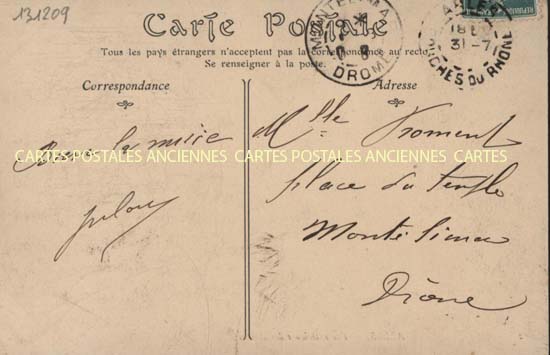 131209
Carte Postale
Tous les pays étrangers n'acceptent pas la correspondance au recto
Se renseigner à la poste.
Correspondance
Adresse
MONTELIMA
DROME
18
31-7
BCHES DU RHÔNE
CARTES POSTALES ANCIENNES CARTES POSTALES ANCIENNES CARTES
Mlle Froment
place du temple
Montélimar
Drôme